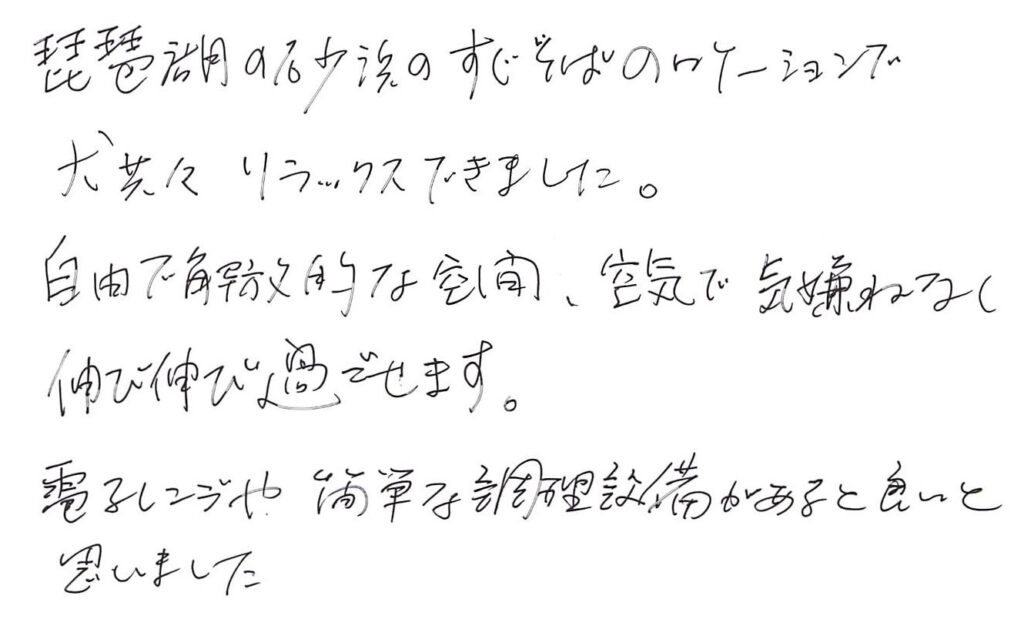 琵琶湖の砂浜のすぐそばのロケーションで
犬共々 リラックスできました。
自由で解放的な空間、空気で 気嫌ねなく
伸び伸び過ごせます。
電子レンジや 簡単な調理設備があると良いと
思いました